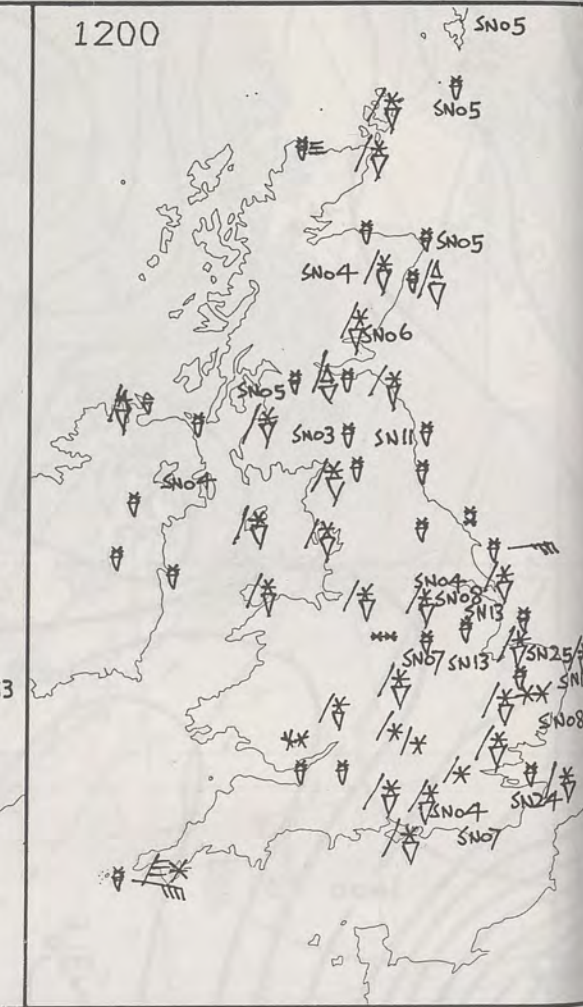 1200
SN05
SN05
SN05
SN04
SN06
SN05
SN03
SN11
SN04
SN04
SN08
SN13
SN07
SN13
SN25
3
SN08
SN04
SN24
SN07